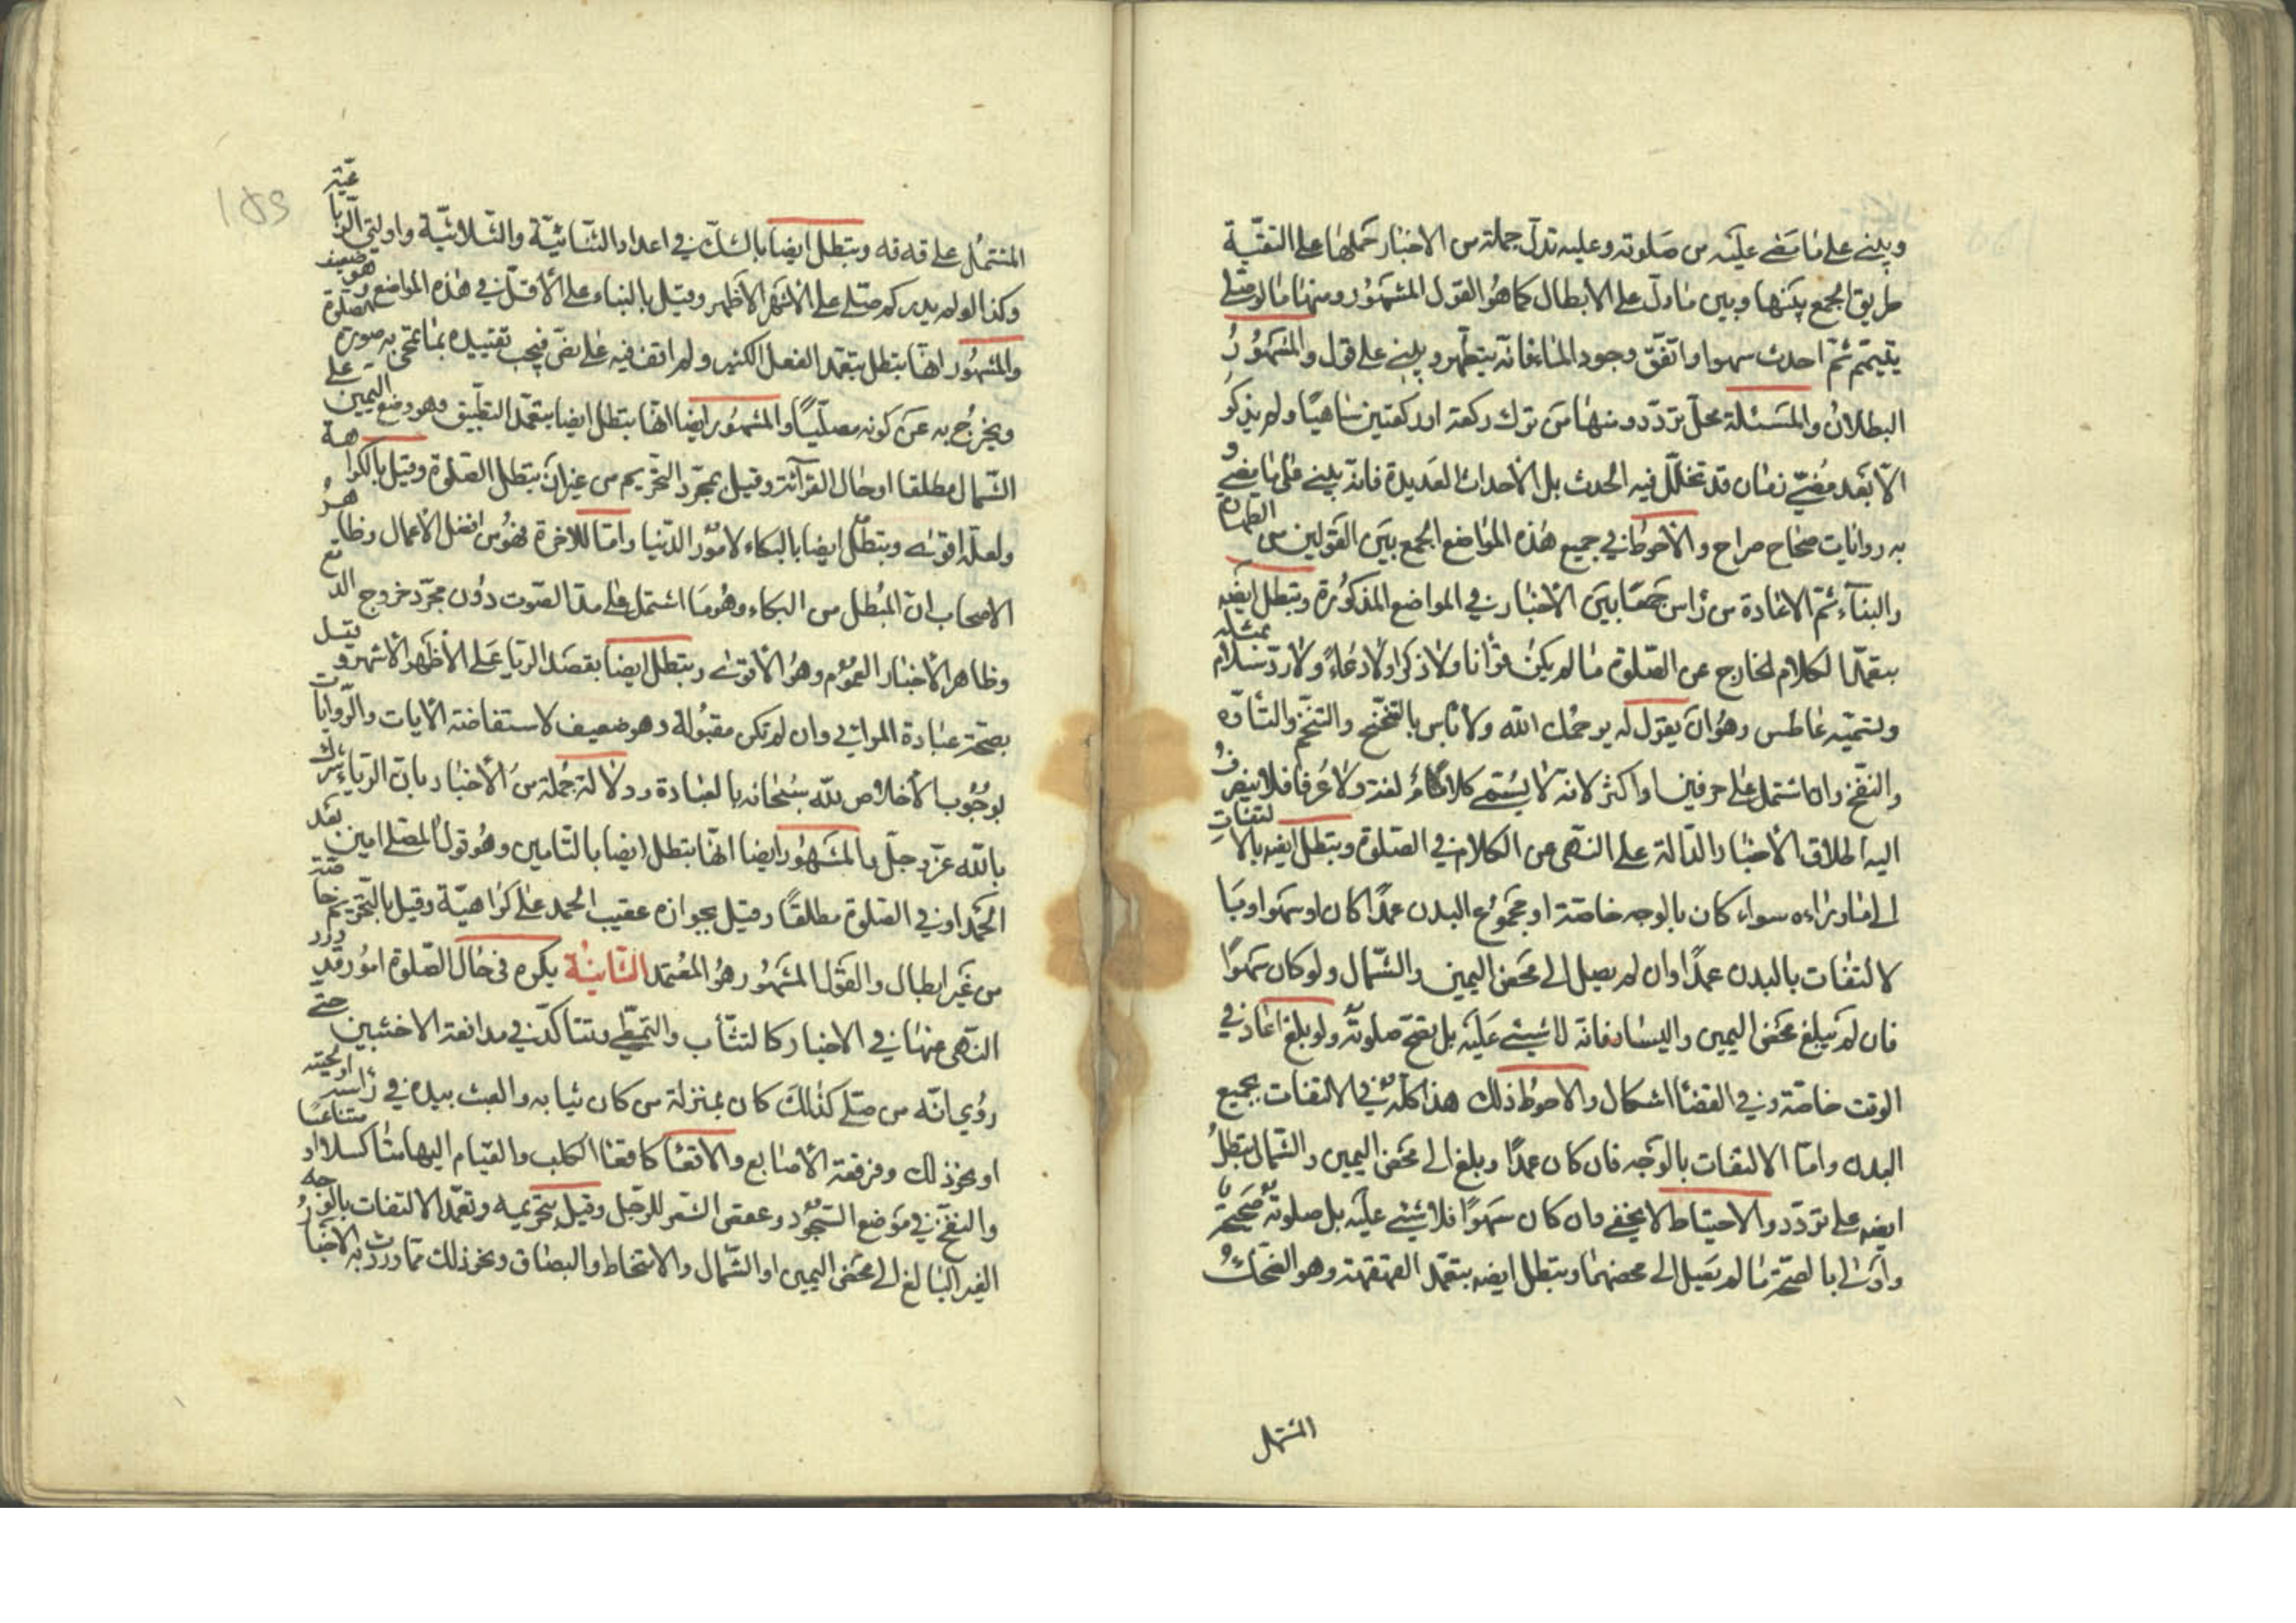 ويبنى على ما مضى عليه من صلوته وعليه تدل جملة من الاخبار حملها على التقية
طريق الجمع بينها وبين ما دل على الابطال كما هو القول المشهور ومنها ما لو صلى
بتيمم ثم احدث سهوا واتفق وجود الماء فانه يتطهر ويبنى على قول والمشهور
البطلان والمسئلة محل تردد ومنها من ترك ركعة او ركعتين ساهيا ولم يذكر
الا بعد مضي زمان قد تخلل فيه الحدث بل الاحداث العديدة فانه يبنى على ما مضى و
به روايات صحاح صراح والاحوط في جميع هذه المواضع الجمع بين القولين من الطهارة
والبناء ثم الاعادة من راس جمعا بين الاخبار في المواضع المذكورة وتبطل ايضه
بتعمد الكلام الخارج عن الصلوة ما لم يكن قرانا ولا ذكرا ولا دعاء ولا رد سلام بمثله
وتسميه عاطس وهو ان يقول له يرحمك الله ولا باس بالتنحنح والتنخم والتأوه
والنفخ وان اشتمل على حرفين او اكثر لانه لا يسمى كلاما لغة ولا عرفا فلا ينصرف
اليه اطلاق الاخبار الدالة على النهى عن الكلام في الصلوة وتبطل ايضه بالالتفات
الى ما وراءه سواء كان بالوجه خاصة او مجموع البدن عمدا كان او سهوا وبا
لالتفات بالبدن عمدا وان لم يصل الى محض اليمين والشمال ولو كان سهوا
فان لم يبلغ محض اليمين واليسار فانه لا شيئ عليه بل تصح صلوته ولو بلغ اعاد في
الوقت خاصة وفي القضا اشكال والاحوط ذلك هذا كله في الالتفات بجميع
البدن واما الالتفات بالوجه فان كان عمدا وبلغ الى محض اليمين والشمال بتطل
ايضه على تردد والاحتياط لا يخفى وان كان سهوا فلا شيئ عليه بل صلوته صحيحة
واولى بالصحة ما لم يصل الى محضهما وتبطل ايضه بتعمد القهقهة وهو الضحك
المشتمل
189
المشتمل على قه قه وبتطل ايضا بالشك في اعداد الثنائية والثلاثية واولتي الرباعية
وكذا لو لم يدر كم صلى على الاشهر الاظهر وقيل بالبناء على الاقل في هذه المواضع وهو ضعيف
والمشهور انها بتطل بتعمد الفعل الكثير ولم اقف فيه على نص فيجب تقييده بما تمحى به صورة الصلوة
ويخرج به عن كونه مصليا والمشهور ايضا انها بتطل ايضا بتعمد التطبيق وهو وضع اليمين على
الشمال مطلقا او حال القرآئة وقيل بمجرد التحريم من غير ان بتطل الصلوة وقيل بالكراهة
ولعله اقوى وبتطل ايضا بالبكاء لامور الدنيا واما للاخرة فهو من افضل الاعمال وظاهر
الاصحاب ان المبطل من البكاء وهو ما اشتمل على مد الصوت دون مجرد خروج الدمع
وظاهر الاخبار العموم وهو الاقوى وبتطل ايضا بقصد الريا على الاظهر الاشهر وقيل
بصحة عبادة المرائي وان لم تكن مقبولة وهو ضعيف لاستفاضة الايات والروايات
بوجوب الاخلاص لله سبحانه بالعبادة ودلالة جملة من الاخبار بان الرياء شرك
بالله عز وجل والمشهور ايضا انها بتطل ايضا بالتامين وهو قول المصلى امين بعد
الحمد او في الصلوة مطلقا وقيل بجوازه عقيب الحمد على كراهية وقيل بالتحريم خاصة
من غير ابطال والقول المشهور هو المعتمد الثانية يكره فى حال الصلوة امور قد ورد
النهى عنها في الاخبار كالتثأب والتمطي وتتاكد في مدافعة الاخبثين حتى
روي انه من صلى كذلك كان بمنزلة من كان ثيابه والعبث بيده في راسه او لحيته
او نحو ذلك وفرقعة الاصابع والاقعا كاقعا الكلب والقيام اليها متكاسلا او متناعسا
والنفخ في موضع السجود وعقص الشعر للرجل وقيل بتحريمه وتعمد الالتفات بالوجه
الغير البالغ الى محض اليمين او الشمال والامتخاط والبصاق ونحو ذلك مما وردت به الاخبار